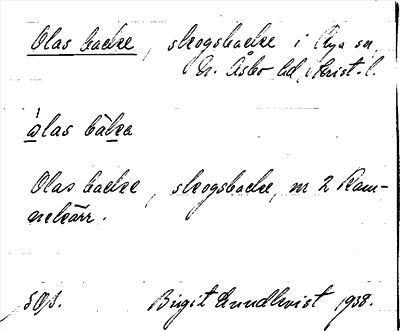 Olas backe, skogsbacke i Rya sn
N. Åsbo hd, Krist. l.
ωlas bàkɐ
Olas backe, skogsbacke, nr 2 Ram-
nekärr.
SOJ. Birgit Lundkvist 1938.